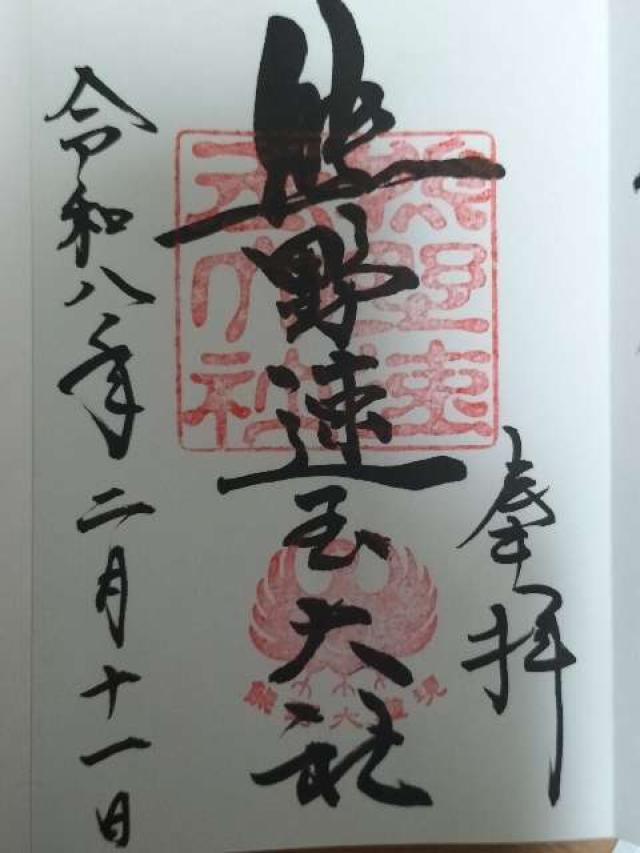 奉拝
熊野速玉大社
令和八年二月十一日
熊野速玉大社
熊野大権現